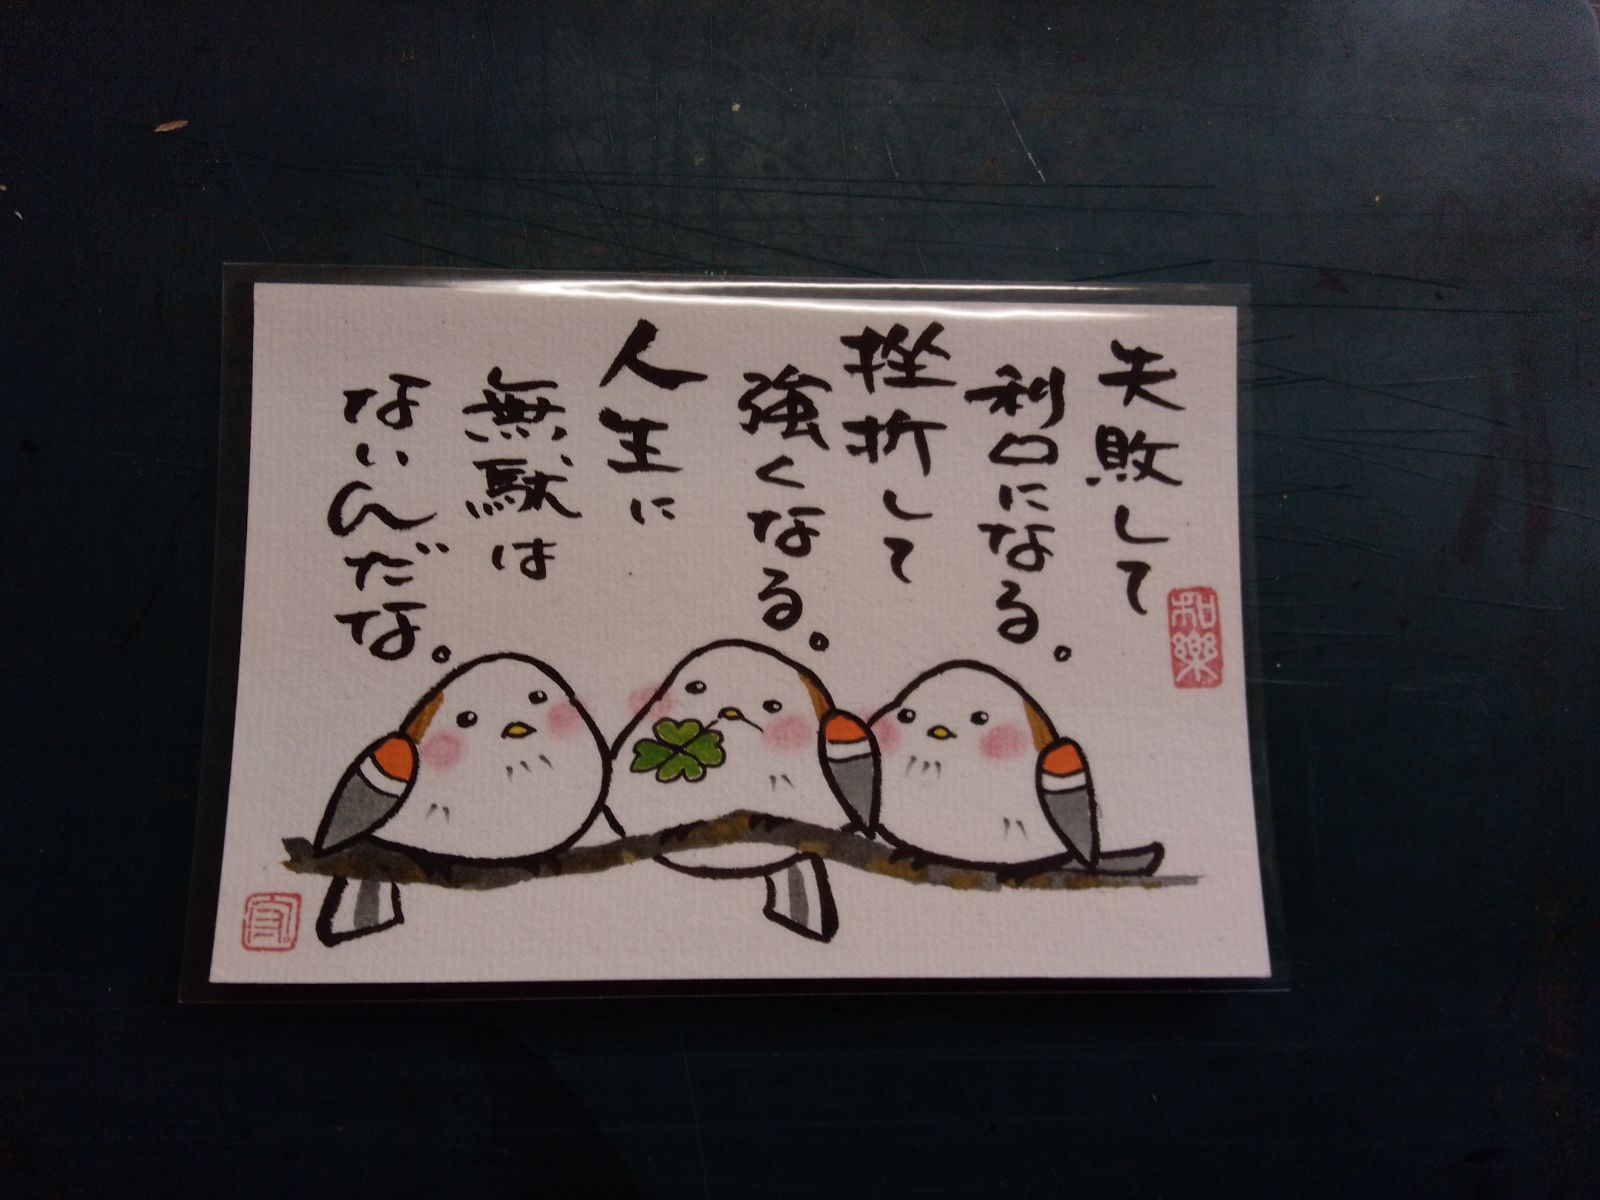 失敗して
利口になる。
挫折して
強くなる。
人生に
無駄は
ないんだな。
和樂